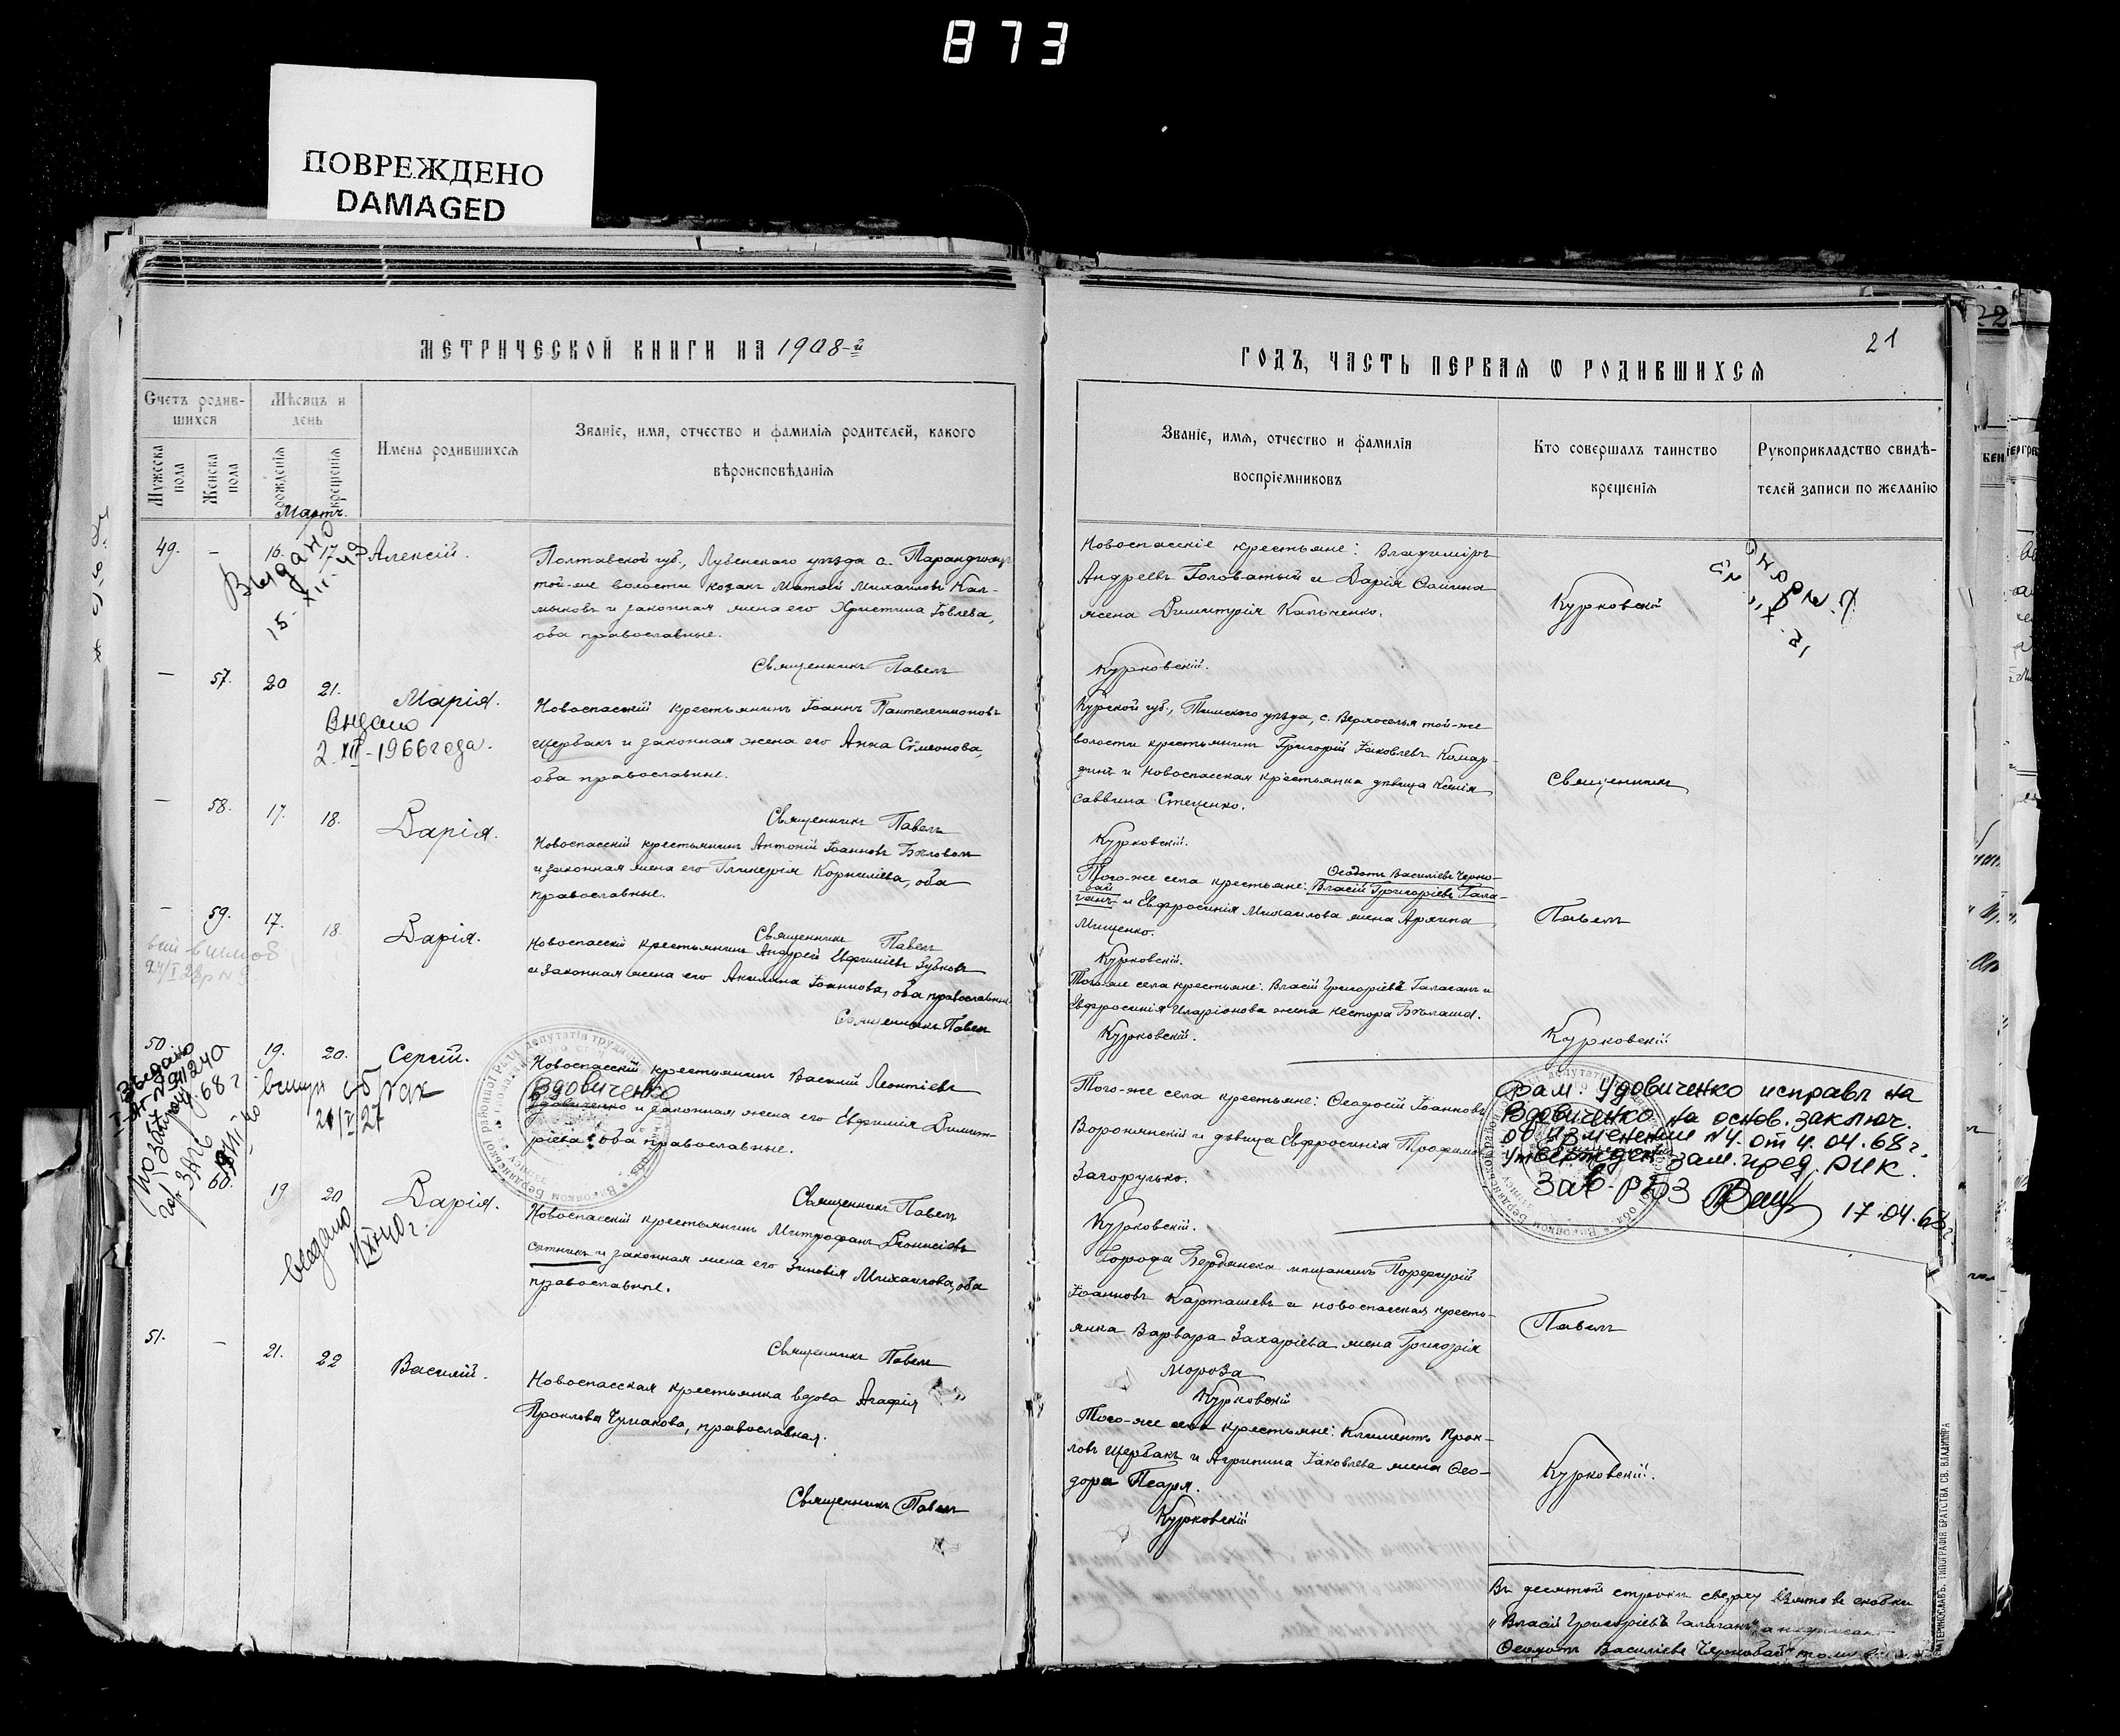 873
ПОВРЕЖДЕНО
DAMAGED
МЕТРИЧЕСКОЙ КНИГИ НА 1908-й
Счетъ родив-
шихся
Мѣсяцъ и
день
Имена родившихся
Званіе, имя, отчество и фамилія родителей, какого
вѣроисповѣданія
Мужеска
пола
Женска
пола
рожденія
крещенія
Мартъ.
49. - 16. 17 Алексій.
Выдано
15-XII-49
Полтавской губ., Лубенскаго уѣзда с.
той-же волости козакъ Матѳей Михаиловъ Кал-
мыковъ и законная жена его Христина Іовлева,
оба православные.
Священникъ Павелъ
- 57. 20 21. Марія.
Видано
2 XII-1966 года.
Новоспасскій крестьянинъ Іоаннъ Пантелеимоновъ
Щербакъ и законная жена его Анна Сѵмеонова,
оба православные.
Священникъ Павелъ
- 58. 17. 18. Дарія.
Новоспасскій крестьянинъ Антоній Іоанновъ
и законная жена его Гликерія Корниліева, оба
православные.
Священникъ Павелъ
- 59. 17. 18. Дарія.
Новоспасскій крестьянинъ Андрей Ефиміевъ Зубковъ
и законная жена его Акилина Іоаннова, оба православные
Священникъ Павелъ
50. 19. 20. Сергій.
Новоспасскій крестьянинъ Василій Леонтіевъ
Вдовиченко
Удовиченко и законная жена его Евфимія Димит-
ріева, оба православные.
Священникъ Павелъ
60. 19 20 Дарія.
Новоспасскій крестьянинъ Митрофанъ Діонисіевъ
Сотникъ и законная жена его Зиновія Михаилова, оба
православные.
Священникъ Павелъ
51. - 21. 22 Василій.
Новоспасская крестьянка вдова Агафія
Проклова Чумакова, православная.
Священникъ Павелъ
21
ГОДЪ, ЧАСТЬ ПЕРВАЯ Ѡ РОДИВШИХСЯ
Званіе, имя, отчество и фамилія
воспріемниковъ
Кто совершалъ таинство
крещенія
Рукоприкладство свидѣ-
телей записи по желанію
Новоспасскіе крестьяне: Владиміръ
Андреевъ Головатый и Дарія Ѳомина
жена Димитрія Капченко.
Курковскій
Курковскій.
Курской губ., Тимскаго уѣзда, с. Верхоселья той-же
волости крестьянинъ Григорій Іаковлевъ Комар-
динъ и Новоспасская крестьянка дѣвица Ксенія
Саввина Стеценко.
Священникъ
Курковскій.
Ѳеодотъ Василіевъ Черно-
бай
Того-же села крестьяне: Власій Григоріевъ Гала-
ганъ и Евфросинія Михаилова жена Архипа
Мищенко.
Павелъ
Курковскій.
Того-же села крестьяне: Власій Григоріевъ Галаганъ и
Евфросинія Иларіонова жена Нестора Бѣлаша.
Курковскій.
Курковскій
Того-же села крестьяне: Ѳеодосій Іоанновъ
Воронянскій и дѣвица Евфросинія Трофимова
Загорулько.
Фам. Удовиченко исправл на
Вдовиченко на основ. заключ.
об изменении №4. от 4.04.68 г.
утвержден зам. пред. РИК.
Зав. РБЗ 17.04.68 г.
Курковскій.
Города Бердянска мѣщанинъ Порфирій
Іоанновъ Карташевъ и новоспасская кресть-
янка Варвара Захаріева жена Григорія
Мороза
Павелъ
Курковскій
Того-же села крестьяне: Климентъ Прок-
ловъ Щербакъ и Агрипина Іаковлева жена Ѳео-
дора Псаря.
Курковскій.
Курковскій
Въ десятой строкѣ сверху взято въ скобки
"Власій Григоріевъ Галаганъ", а надписано
Ѳеодотъ Василіевъ Чернобай"
ЕКАТЕРИНОСЛАВЪ. ТИПОГРАФІЯ БРАТСТВА СВ. ВЛАДИМІРА